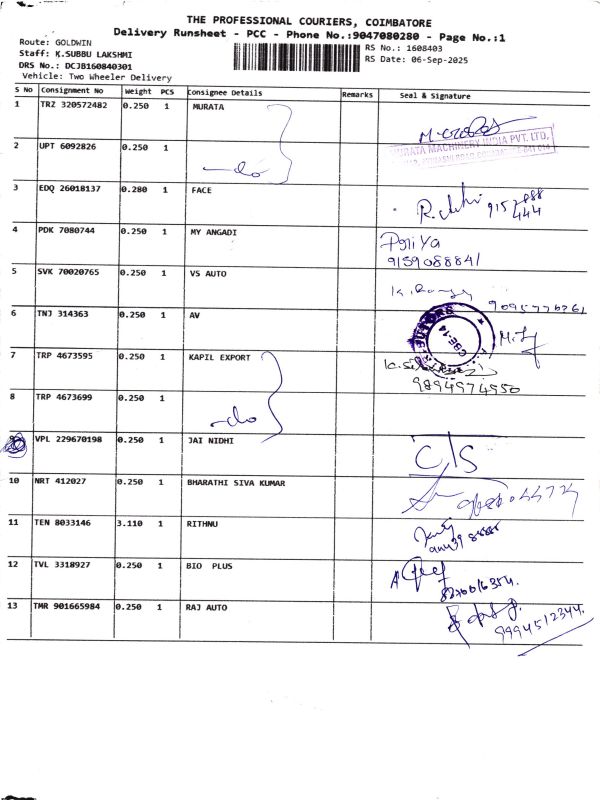 THE PROFESSIONAL COURIERS, COIMBATORE
Delivery Runsheet - PCC - Phone No.:9047080280 - Page No.:1
Route: GOLDWIN
RS No.: 1608403
Staff: K.SUBBU LAKSHMI
RS Date: 06-Sep-2025
DRS No.: DCJB160840301
Vehicle: Two Wheeler Delivery
S No Consignment No Weight PCS Consignee Details Remarks Seal & Signature
1 TRZ 320572482 0.250 1 MURATA
2 UPT 6092826 0.250 1 -do MURATA MACHINERY INDIA PVT. LTD.
3 EDQ 26018137 0.280 1 FACE
4 PDK 7080744 0.250 1 MY ANGADI Poriya
9159088841
5 SVK 70020765 0.250 1 VS AUTO
6 TNJ 314363 0.250 1 AV CBE-14
7 TRP 4673595 0.250 1 KAPIL EXPORT
9894974550
8 TRP 4673699 0.250 1 -do
VPL 229670198 0.250 1 JAI NIDHI C/S
10 NRT 412027 0.250 1 BHARATHI SIVA KUMAR
11 TEN 8033146 3.110 1 RITHNU
12 TVL 3318927 0.250 1 BIO PLUS
13 TMR 901665984 0.250 1 RAJ AUTO
9994512344.